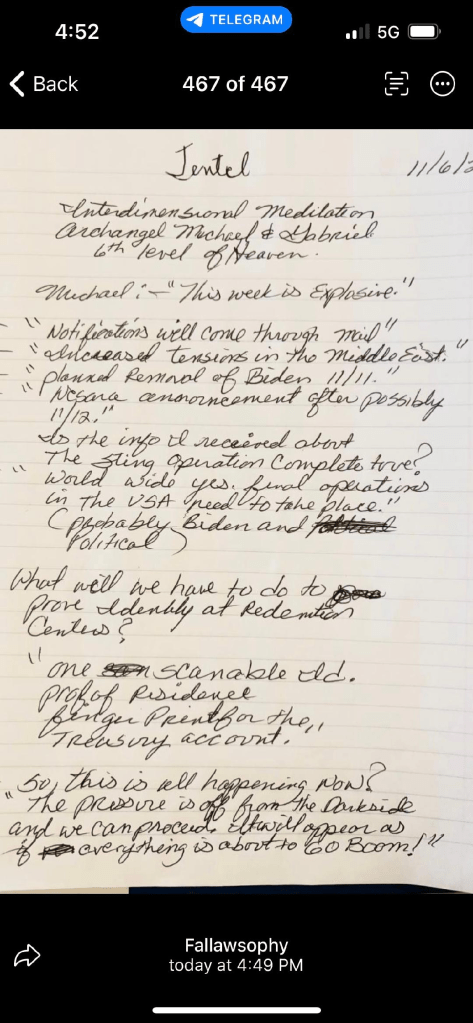 4:52
TELEGRAM
5G
Back
467 of 467
Jentel
11/6/2
Interdimensional Meditation
Archangel Michael & Gabriel
6th level of Heaven.
Michael: - "This week is Explosive."
"Notifications will come through mail"
"Increased tensions in the Middle East."
"planned Removal of Biden 11/11."
"Nesara announcement after possibly
11/12."
Is the info I received about
The Sting Operation Complete true?
"World wide yes. final operations
in the USA need to take place."
(probably Biden and
Political)
What will we have to do to
prove Idenity at Redemtion
Centers?
"one scanable Id.
proof of Residence
finger Print for the
Treasury account."
So, this is all happening Now?
"The pressure is off from the Darkside
and we can proceed. It will appear as
if everything is about to GO Boom!"
Fallawsophy
today at 4:49 PM